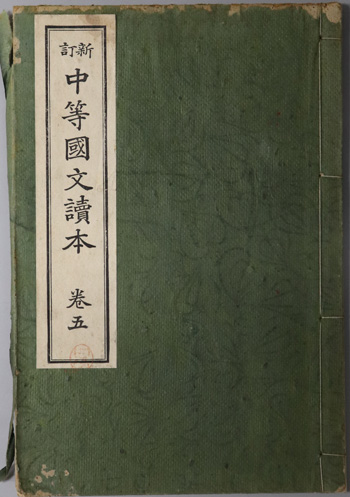 新訂
中等國文讀本
卷五